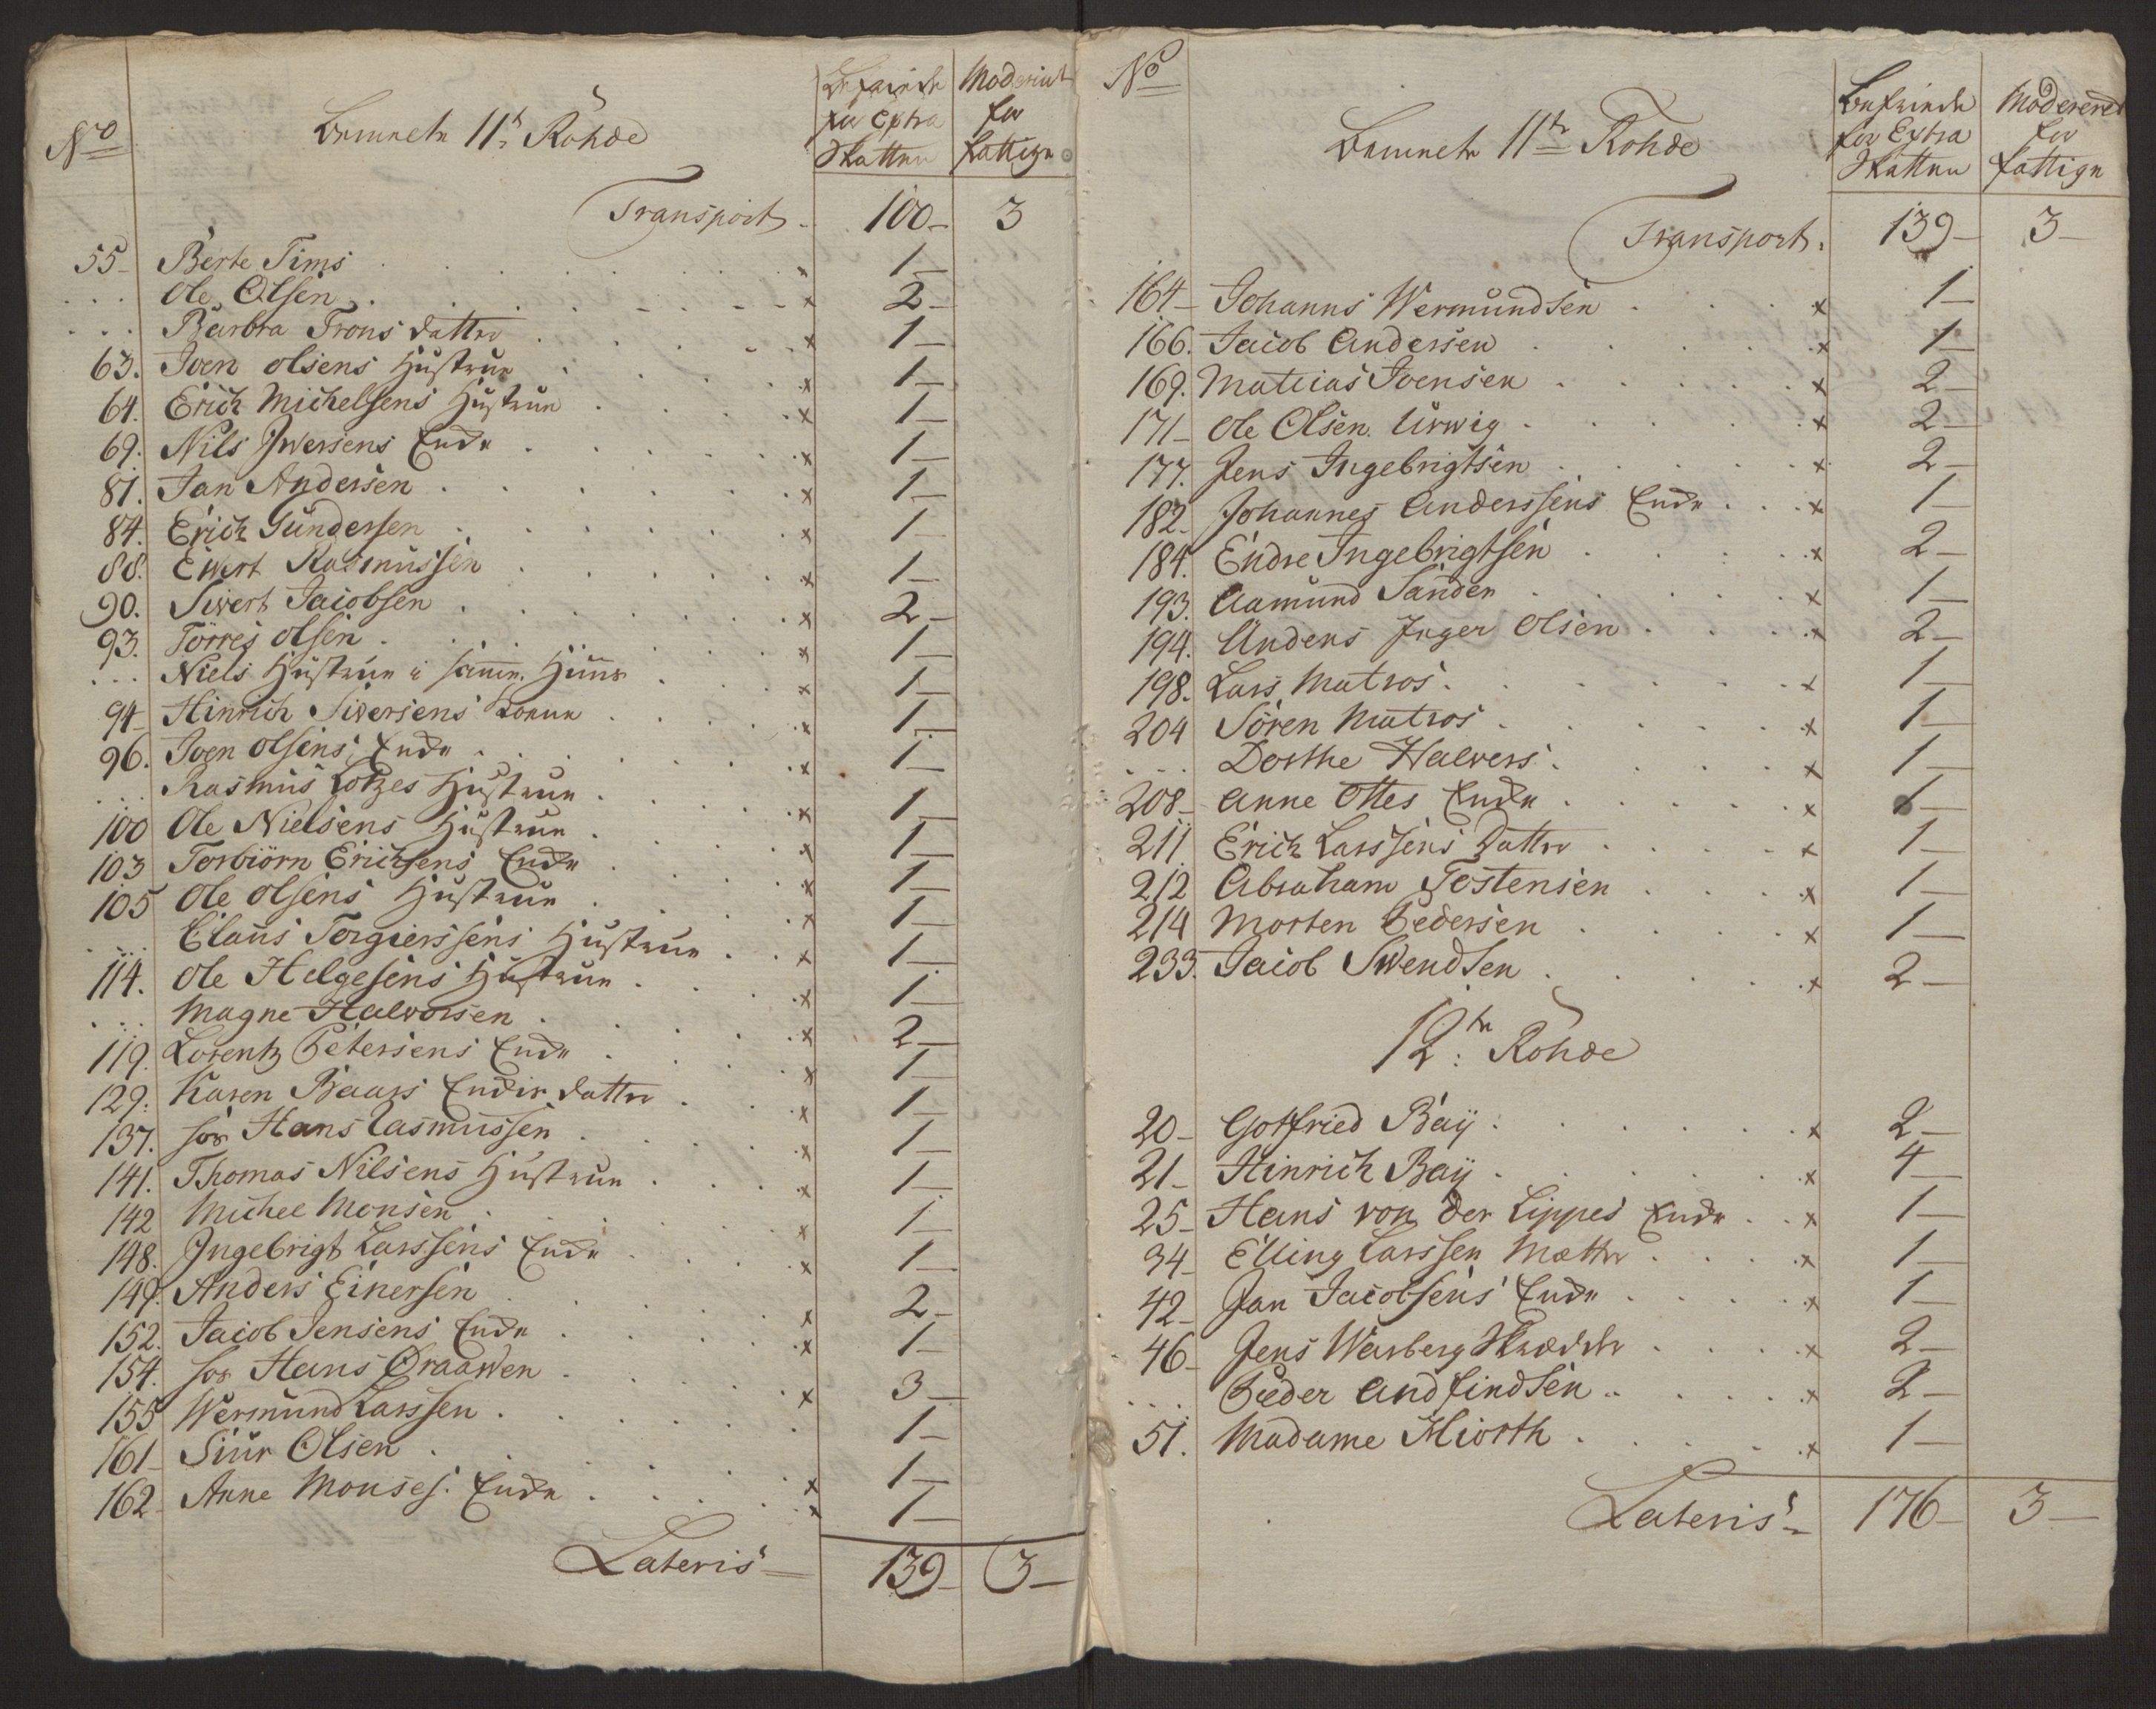 No
Bemelte 11te Rohde
Befriede
for Extra
Skatten
Moderert
for
fattige
Transport 100- 3
55- Berte Tims 1-
... Ole Olsen x 2-
... Barbra Trons datter x 1-
63. Iven olsens Hustrue x 1-
64. Erich Michelsens Hustrue x 1-
69. Nils Iwersens Enke x 1-
81. Jan Andersen x 1-
84. Erich Gundersen x 1-
88. Ewert Rasmussen x 1-
90. Siwert Jacobsen x 2-
93. Törres olsen x 1-
... Niels Hustrue i samme Huus x 1-
94- Hinrich Siversens Konne x 1-
96. Iven olsens Enke x 1-
... Rasmus Lotzes Hustrue x 1-
100 Ole Nielsens Hustrue x 1-
103 Torbiörn Erichsens Enke x 1-
105 Ole olsens Hustrue x 1-
... Claus Torgierssens Hustrue x 1-
114. Ole Helgesens Hustrue x 1-
... Magne Halvorsen x 2-
119. Lorentz Petersens Enke x 1-
129. Karen Baars Enke datter x 1-
137. sor Hans Rasmussen x 1-
141. Thomas Nilsens Hustrue x 1-
142 Michel Monsen x 1-
148. Ingebrigt Larssens Enke x 1-
149. Anders Einersen x 2-
152. Jacob Jensens Enke x 1-
154. sor Hans Graawen x 3-
155 Wermund Larssen 1-
161- Siur Olsen x 1-
162- Anne Monses. Enke x 1-
Lateris 139- 3-
No
Bemelte 11te Rohde
Befriede
for Extra
Skatten
Modereret
for
fattige
Transport. 139- 3-
164- Johanns Wermundsen x 1-
166. Jacob Andersen x 1-
169. Matias Ivensen x 2-
171- Ole Olsen Urwig x 2-
177. Jens Ingebrigtsen x 2-
182- Johannes Anderssens Enke x 1-
184. Endre Ingebrigtsen x 2-
193. Aamund Sanden x 1-
194. Anders Inger Olsen x 2-
198. Lars Matros x 1-
204 Sören Matros x 1-
... Dorthe Halvers x 1-
208- Anne Ottes Enke x 1-
211 Erich Larssens Datter x 1-
212 Abraham Tostensen x 1-
214 Morten Pedersen x 1-
233. Jacob Swendsen x 2-
12te Rohde
20- Gotfried Baÿ x 2-
21- Hinrich Baÿ x 4-
25- Hans von der Lippes Enke x 1-
34- Elling Larssen Mætter x 1-
42- Jan Jacobsens Enke x 1-
46- Jens Warberg Skrædder x 2-
... Peder Andfindsen x 2-
51. Madame Hiorth x 1-
Lateris 176- 3-